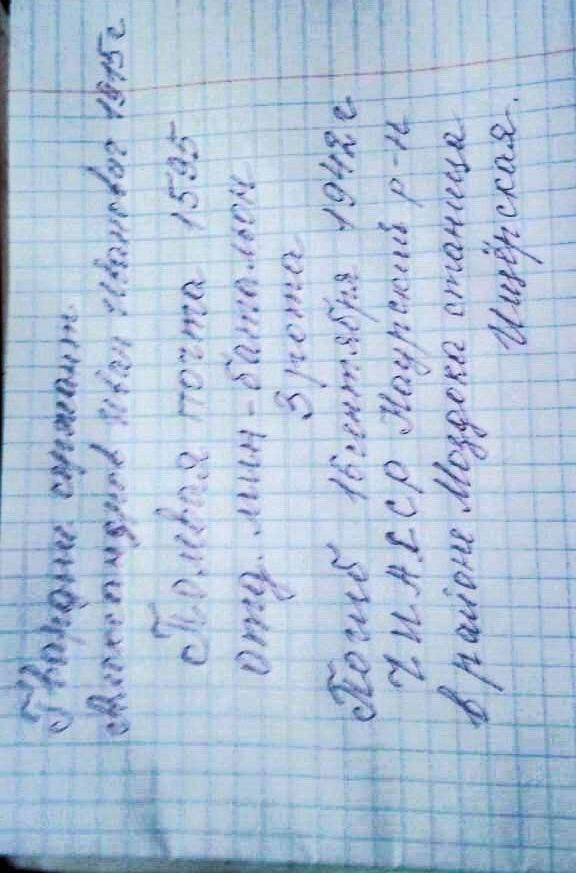 Гвардии сержант
Александров Иван Иванович 1915 г
Полевая почта 1595
отд. мин-батальон
3 рота
Погиб 16 сентября 1942 г
ЧИАССР Наурский р-н
в районе Моздока станица
Ищёрская.